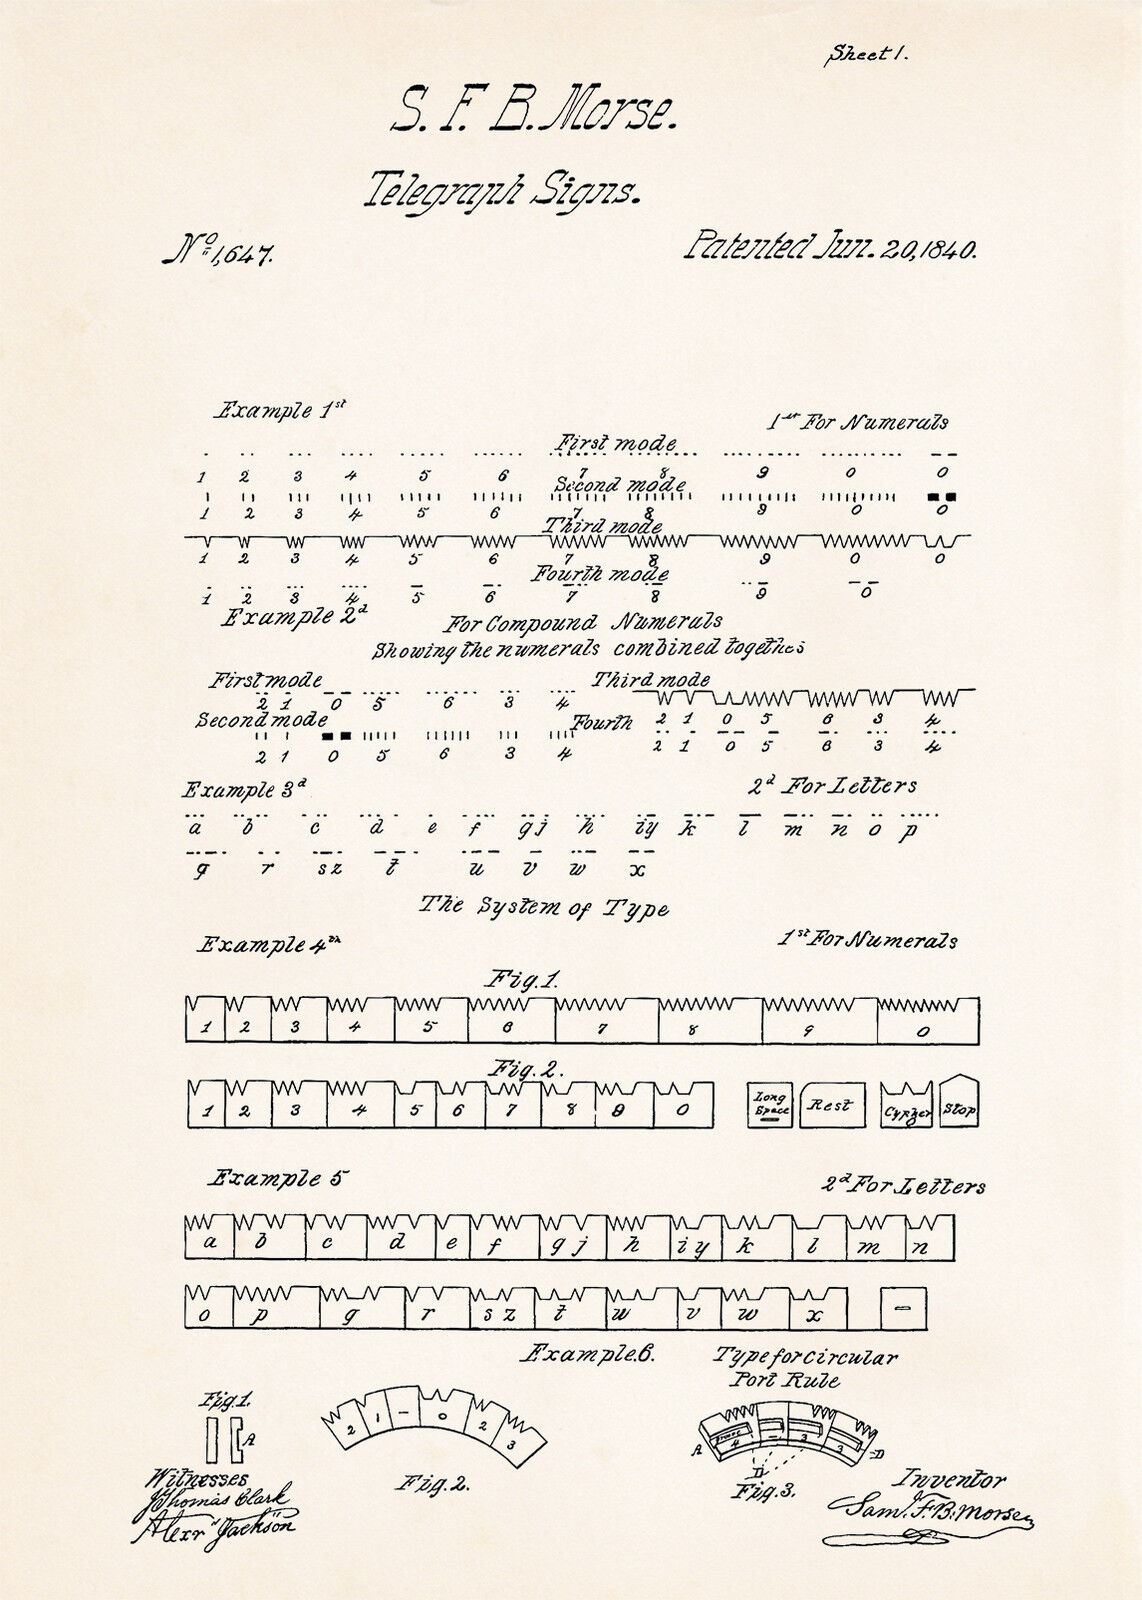 Sheet 1.
S. F. B. Morse.
Telegraph Signs.
No 1,647.
Patented Jun. 20, 1840.
Example 1st
1st For Numerals
First mode
1 2 3 4 5 6 7 8 9 0 0
Second mode
1 2 3 4 5 6 7 8 9 0 0
Third mode
1 2 3 4 5 6 7 8 9 0 0
Fourth mode
1 2 3 4 5 6 7 8 9 0
Example 2d
For Compound Numerals
Showing the numerals combined together
First mode
2 1 0 5 6 3 4
Third mode
2 1 0 5 6 3 4
Second mode
2 1 0 5 6 3 4
Fourth
2 1 0 5 6 3 4
Example 3d
2d For Letters
a b c d e f g j h i y k l m n o p
q r s z t u v w x
The System of Type
Example 4th
1st For Numerals
Fig. 1.
1 2 3 4 5 6 7 8 9 0
Fig. 2.
1 2 3 4 5 6 7 8 9 0
Long Space
Rest
Cypher
Stop
Example 5
2d For Letters
a b c d e f g j h i y k l m n
o p q r s z t u v w x –
Example 6.
Type for circular
Port Rule
Fig. 1.
A
2 1 – 0 2 3
Fig. 2.
A 4 – 3 3 D
D
Fig. 3.
Witnesses
J Thomas Clark
Alexr Jackson
Inventor
Sam. F. B. Morse